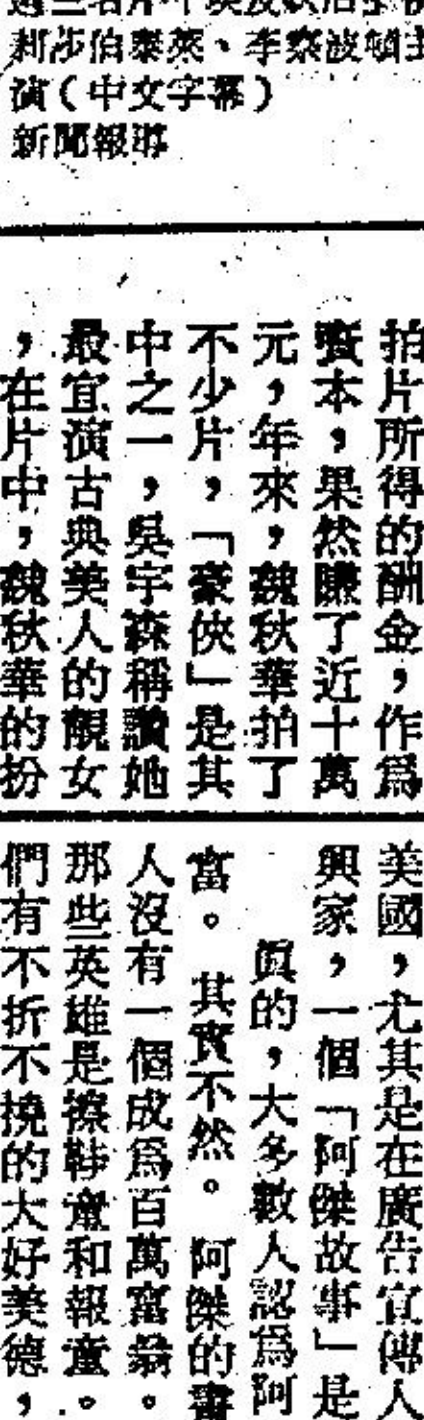 利莎伯泰萊、李察波頓主
演(中文字幕)
新聞報導
拍片所得的酬金,作爲
資本,果然賺了近十萬
元,年來,魏秋華拍了
不少片,「豪俠」是其
中之一,吳宇森稱讚她
最宜演古典美人的靚女
,在片中,魏秋華的扮
美國,尤其是在廣告宣傳人
興家,一個「阿傑故事」是
眞的,大多數人認爲阿
富。其實不然。阿傑的書
人沒有一個成爲百萬富翁。
那些英雄是擦鞋童和報童。
們有不折不撓的大好美德,